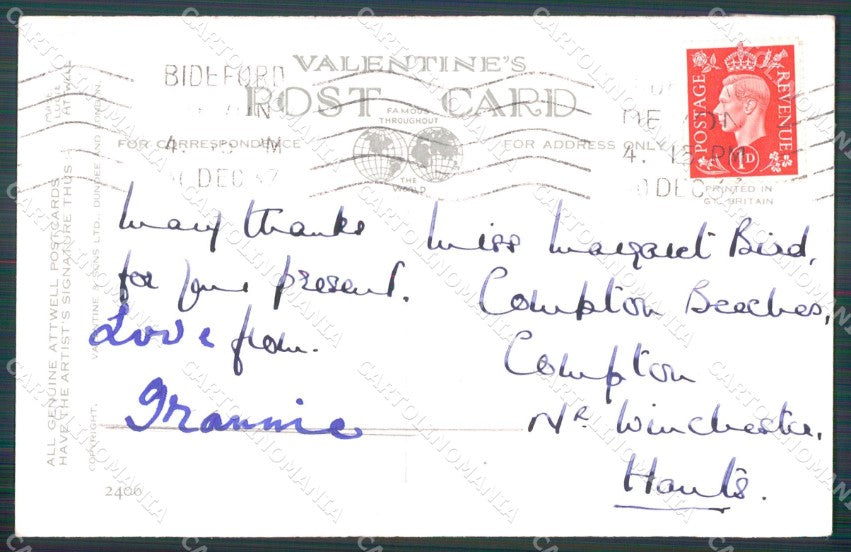 VALENTINE'S
POST CARD
FAMOUS
THROUGHOUT
THE
WORLD
FOR CORRESPONDENCE
FOR ADDRESS ONLY
BIDEFORD
DEVON
4. 15 PM
DEC
POSTAGE
REVENUE
1D
PRINTED IN
GT. BRITAIN
Many thanks
for your present.
Love from.
Grannie
Miss Margaret Bird,
Compton Beeches,
Compton
Nr. Winchester,
Hants.
ALL GENUINE ATTWELL POSTCARDS
HAVE THE ARTIST'S SIGNATURE THUS:
ATTWELL
COPYRIGHT.
VALENTINE & SONS LTD. DUNDEE AND LONDON.
2406
CARTOLINOMANIA